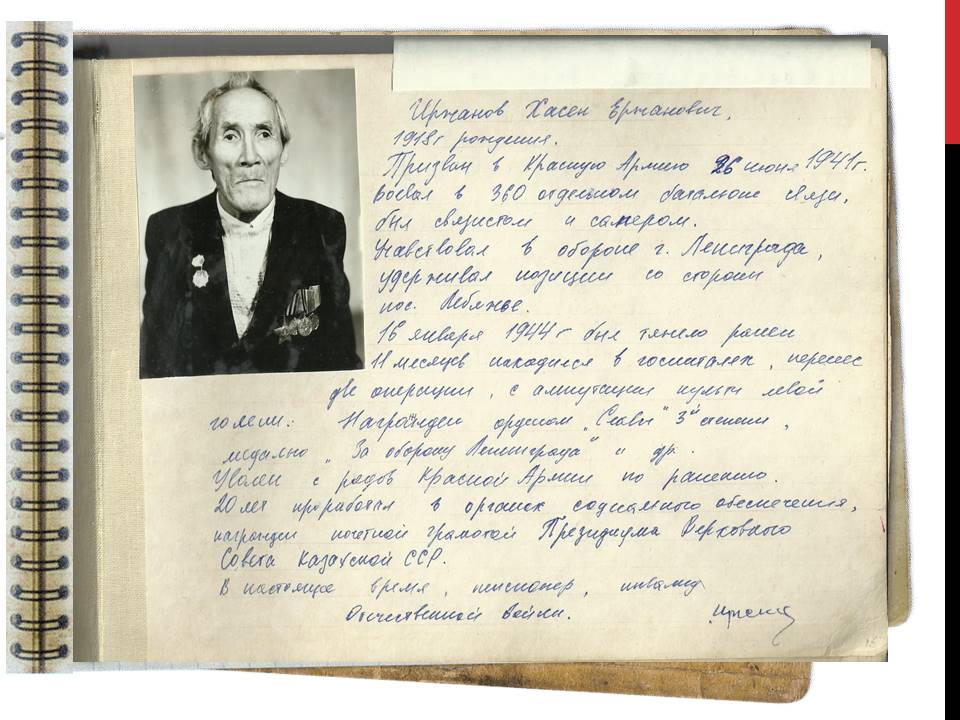 Иржанов Хасен Ержанович,
1918 г рождения.
Призван в Красную Армию 26 июня 1941 г.
Воевал в 360 отдельном батальоне связи,
был связистом и сапером.
Учавствовал в обороне г. Ленинграда,
удерживал позиции со стороны
пос. Лебяжье.
16 января 1944 г был тяжело ранен
11 месяцев находился в госпиталях, перенес
две операции, с ампутации культи левой
голени. Награжден орденом „Славы" 3й степени,
медалью „За оборону Ленинграда" и др.
Уволен с рядов Красной Армии по ранению.
20 лет проработал в органах социального обеспечения,
награжден почетной грамотой Президиума Верховного
Совета Казахской ССР.
В настоящее время, пенсионер, инвалид
Отечественной войны.